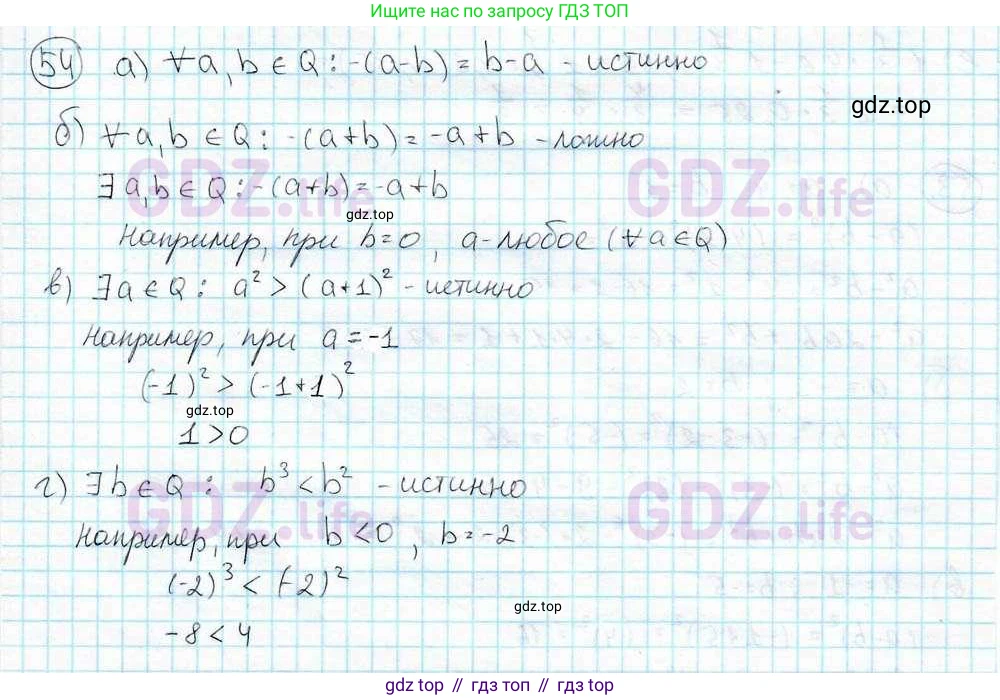 Ищите нас по запросу ГДЗ ТОП
54 а) ∀a,b ∈ Q : -(a-b) = b-a - истинно
gdz.top
б) ∀a,b ∈ Q : -(a+b) = -a+b - ложно
GDZ.life GDZ.life
∃a,b ∈ Q : -(a+b) = -a+b
gdz.top
Например, при b=0, a-любое (∀a∈Q)
в) ∃a ∈ Q : a² > (a+1)² - истинно
Например, при a = -1
(-1)² > (-1+1)²
gdz.top
1 > 0
г) ∃b ∈ Q : b³ < b² - истинно
GDZ.life GDZ.life
Например, при b < 0, b = -2
(-2)³ < (-2)²
gdz.top
-8 < 4
gdz top // гдз топ // gdz.top